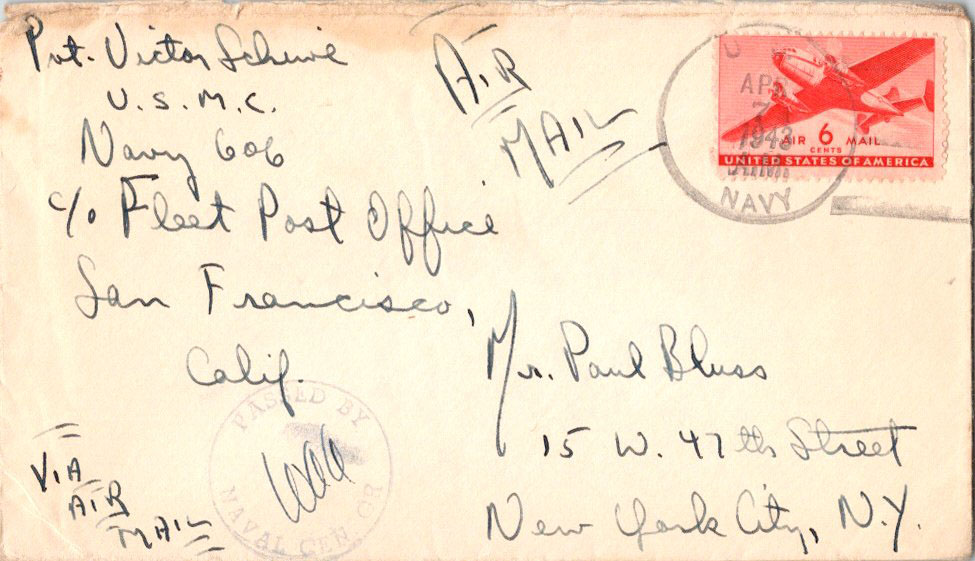 Pvt. Victor Schwie
U.S.M.C.
Navy 606
c/o Fleet Post Office
San Francisco,
Calif.
AIR
MAIL
APR
7
1943
NAVY
AIR 6 MAIL
CENTS
UNITED STATES OF AMERICA
Mr. Paul Bluss
15 W. 47th Street
New York City, N.Y.
VIA
AIR
MAIL
PASSED BY
NAVAL CENSOR